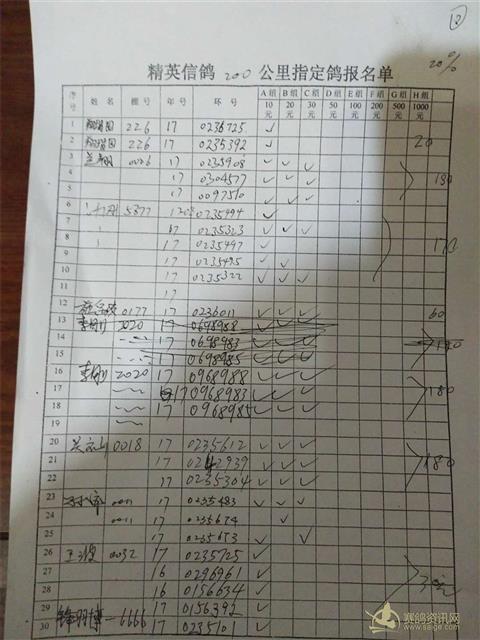 12
20%
精英信鸽 200 公里指定鸽报名单
序号 姓名 棚号 年号 环号 A组10元 B组20元 C组30元 D组50元 E组100元 F组200元 G组500元 H组1000元
1 226 17 0236725 ✓
2 226 17 0235392 ✓ 20
3 0026 17 0235908 ✓ ✓ ✓
4 17 0304577 ✓ ✓ ✓
5 17 0097510 ✓ ✓ ✓
6 5877 17 0235494 ✓
7 17 0235323 ✓ ✓ ✓
8 17 0235497 ✓
9 17 0235495 ✓ ✓
10 17 0235322 ✓ ✓ ✓
11 17
12 0177 17 0236011 ✓ ✓ ✓ 60
13 李刚 2020 17 0698988
14 17 0698983 ✓ ✓ ✓
15 17 0698985 ✓ ✓ ✓
16 李刚 2020 17 0968988 ✓ ✓ ✓
17 17 0968983 ✓ ✓ ✓ 180
18 17 0968985 ✓ ✓ ✓
19
20 0018 17 0235612 ✓ ✓ ✓
21 17 0242939 ✓ ✓ ✓ 180
22 17 0235304 ✓ ✓ ✓
23 0011 17 0235483 ✓ ✓ ✓
24 0011 17 0235674 ✓
25 17 0235673 ✓ ✓
26 王波 0032 17 0235725 ✓
27 16 0296961 ✓
28 16 0156634 ✓
29 6666 17 0156392 ✓
30 17 0235101 ✓
赛鸽资讯网
www.saige.com